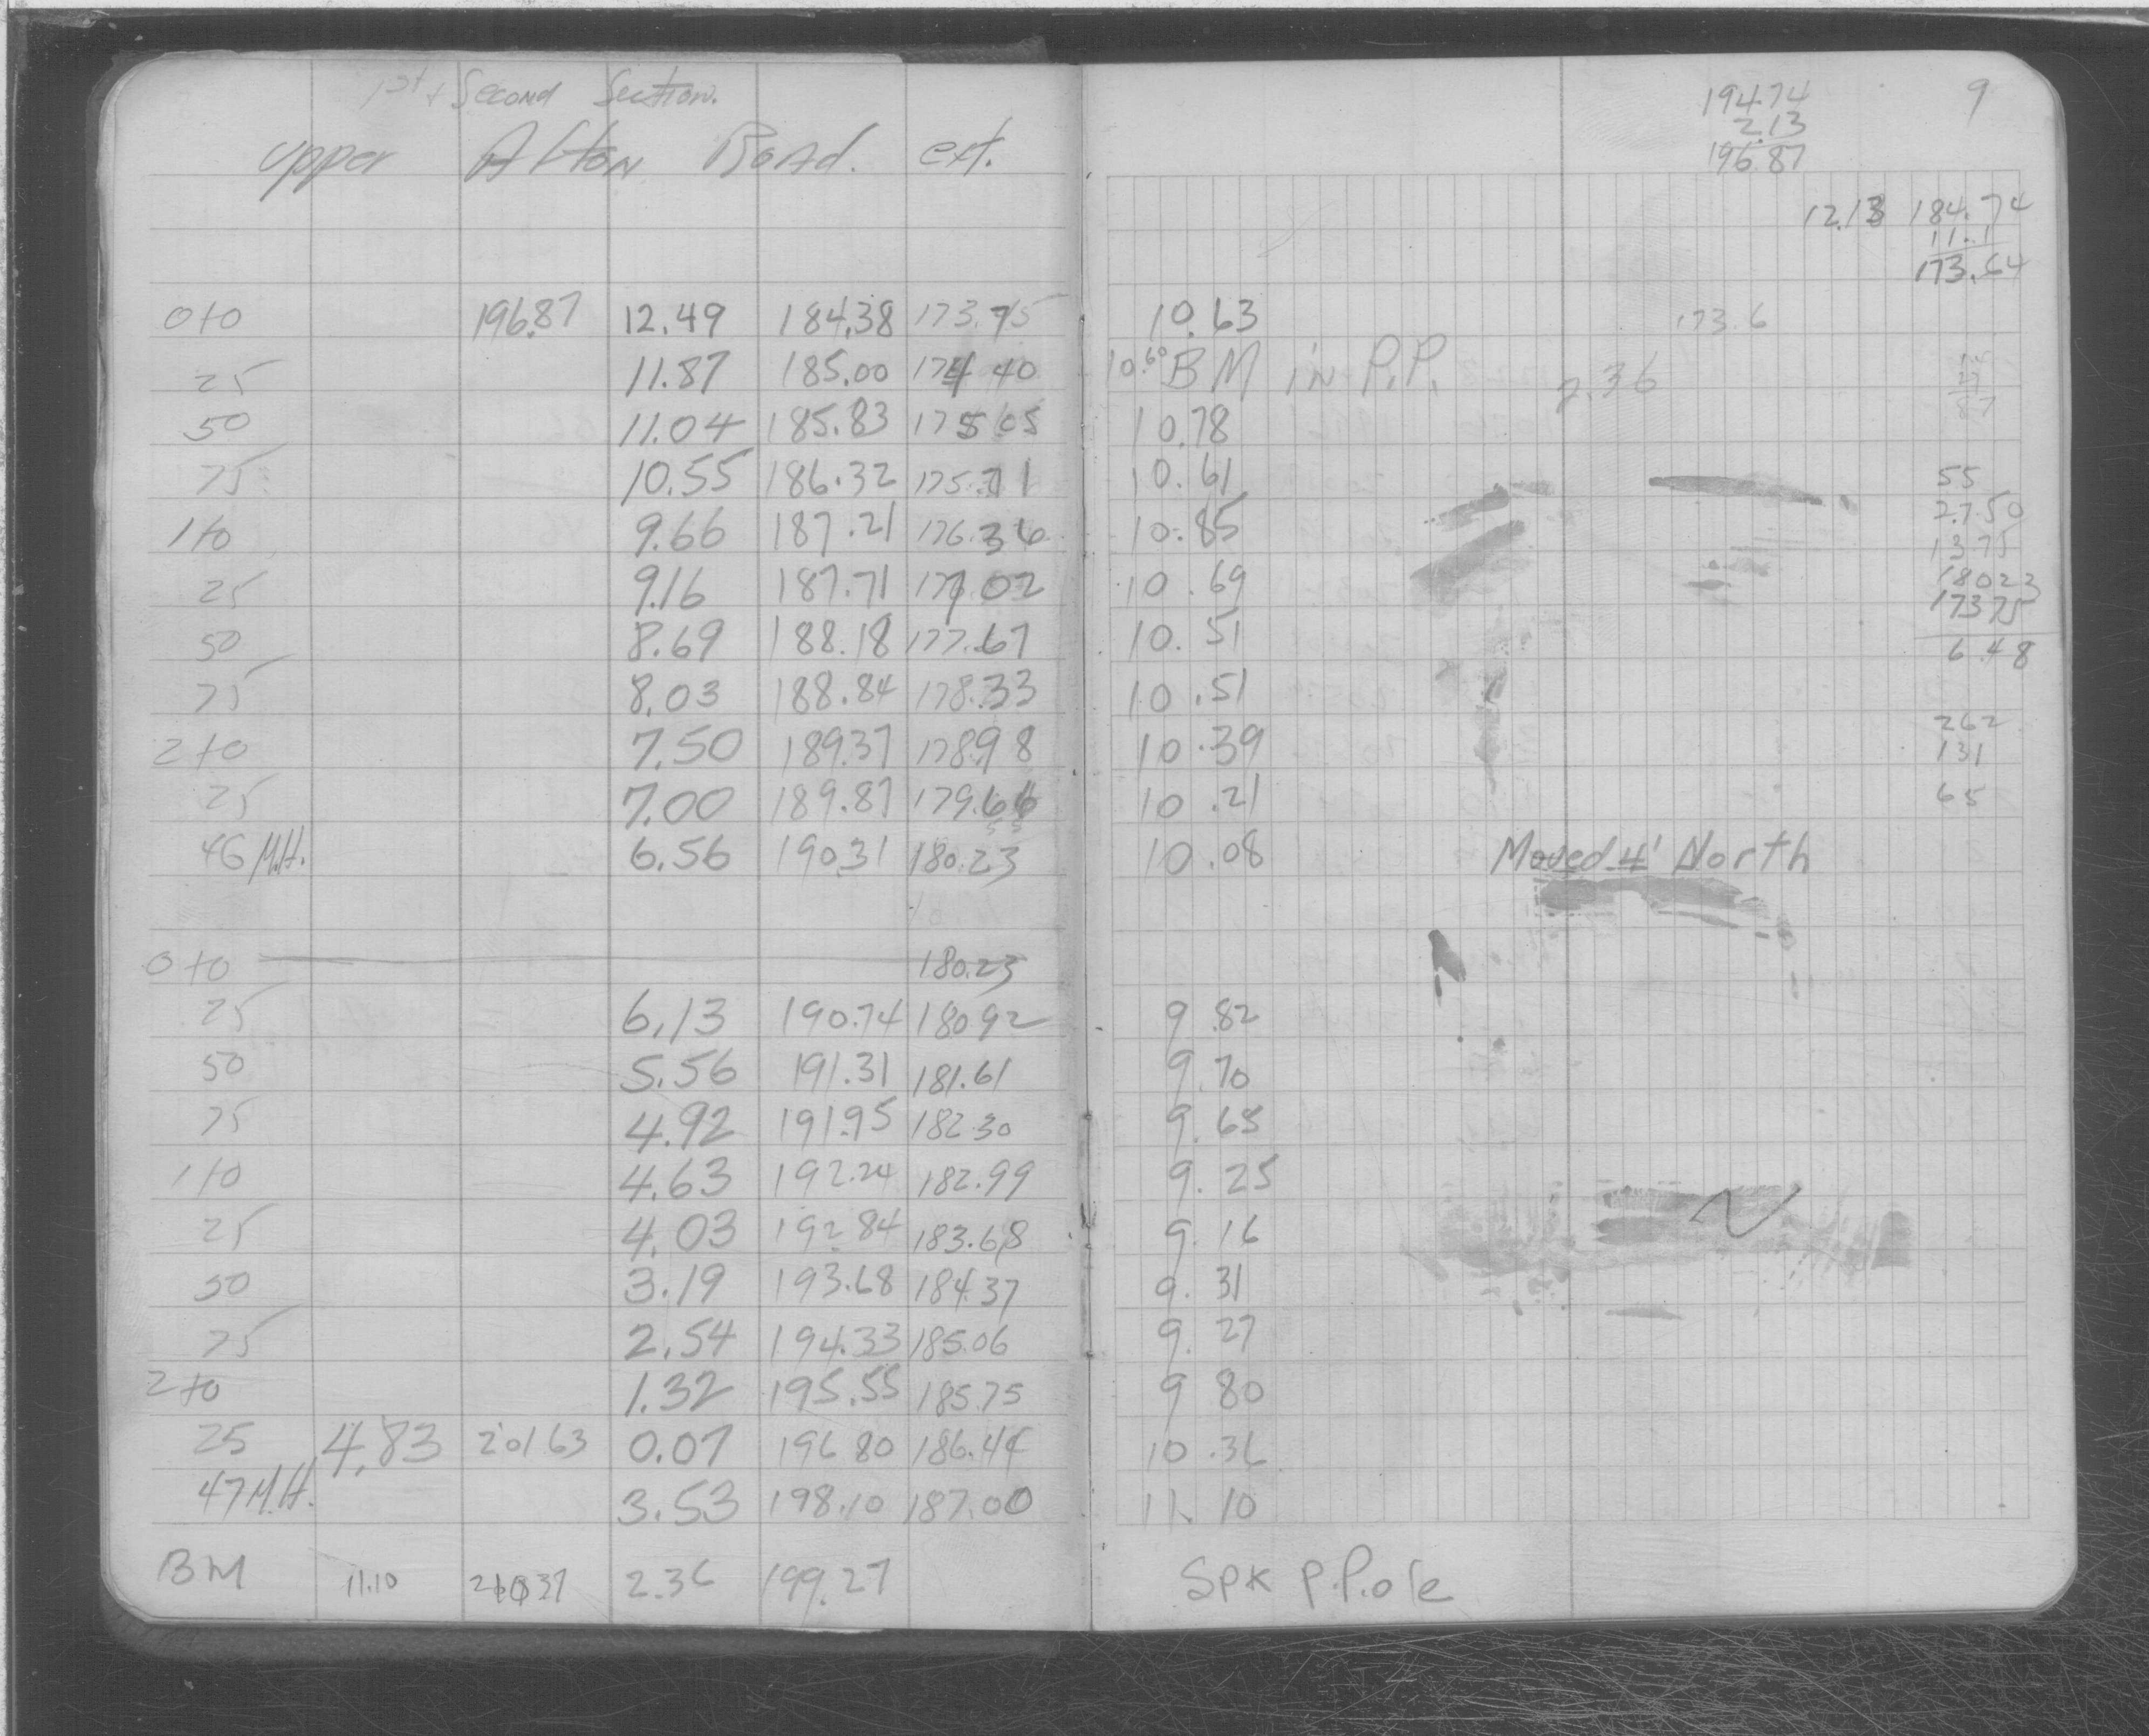 1st + Second Section.
Upper Afton Road. ext.
9
194.74
2.13
196.87
12.13 184.74
11.1
173.64
0+0 196.87 12.49 184.38 173.75 10.63 173.6
25 11.87 185.00 174 40 10.60 BM in P.P. 2.36
50 11.04 185.83 175.05 10.78
75 10.55 186.32 175.71 10.61 55
27.50
1+0 9.66 187.21 176.36 10.85 13.75
25 9.16 187.71 177.02 10.69 180 23
173 75
50 8.69 188.18 177.67 10.51 6.48
75 8.03 188.84 178.33 10.51
2+0 7.50 189.37 178.98 10.39 262
131
25 7.00 189.87 179.66 10.21 65
46 M.H. 6.56 190.31 180.23 10.08 Moved 4' North
0+0 180.23
25 6.13 190.74 180 92 9.82
50 5.56 191.31 181.61 9.70
75 4.92 191.95 182.30 9.65
1+0 4.63 192.24 182.99 9.25
25 4.03 192.84 183.68 9.16
50 3.19 193.68 184.37 9.31
75 2.54 194.33 185.06 9.27
2+0 1.32 195.55 185.75 9 80
25 4.83 201 63 0.07 196 80 186.44 10.36
47 M.H. 3.53 198.10 187.00 11.10
BM 11.10 210 37 2.36 199.27 Spk P.Pole